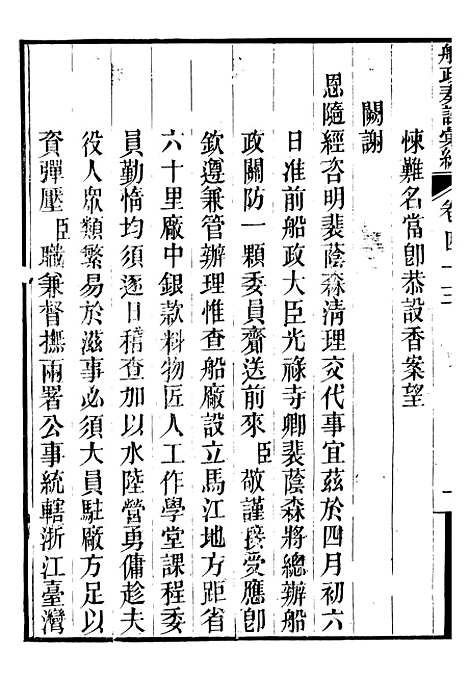 船政奏議彙編 卷四十三
悚難名當卽恭設香案望
闕謝
恩隨經咨明裴蔭森淸理交代事宜茲於四月初六
日准前船政大臣光祿寺卿裴蔭森將總辦船
政關防一顆委員齎送前來臣敬謹接受應卽
欽遵兼管辦理惟查船廠設立馬江地方距省
六十里廠中銀款料物匠人工作學堂課程委
員勤惰均須逐日稽查加以水陸營勇傭趁夫
役人衆類繁易於滋事必須大員駐廠方足以
資彈壓臣職兼督撫兩署公事統轄浙江臺灣